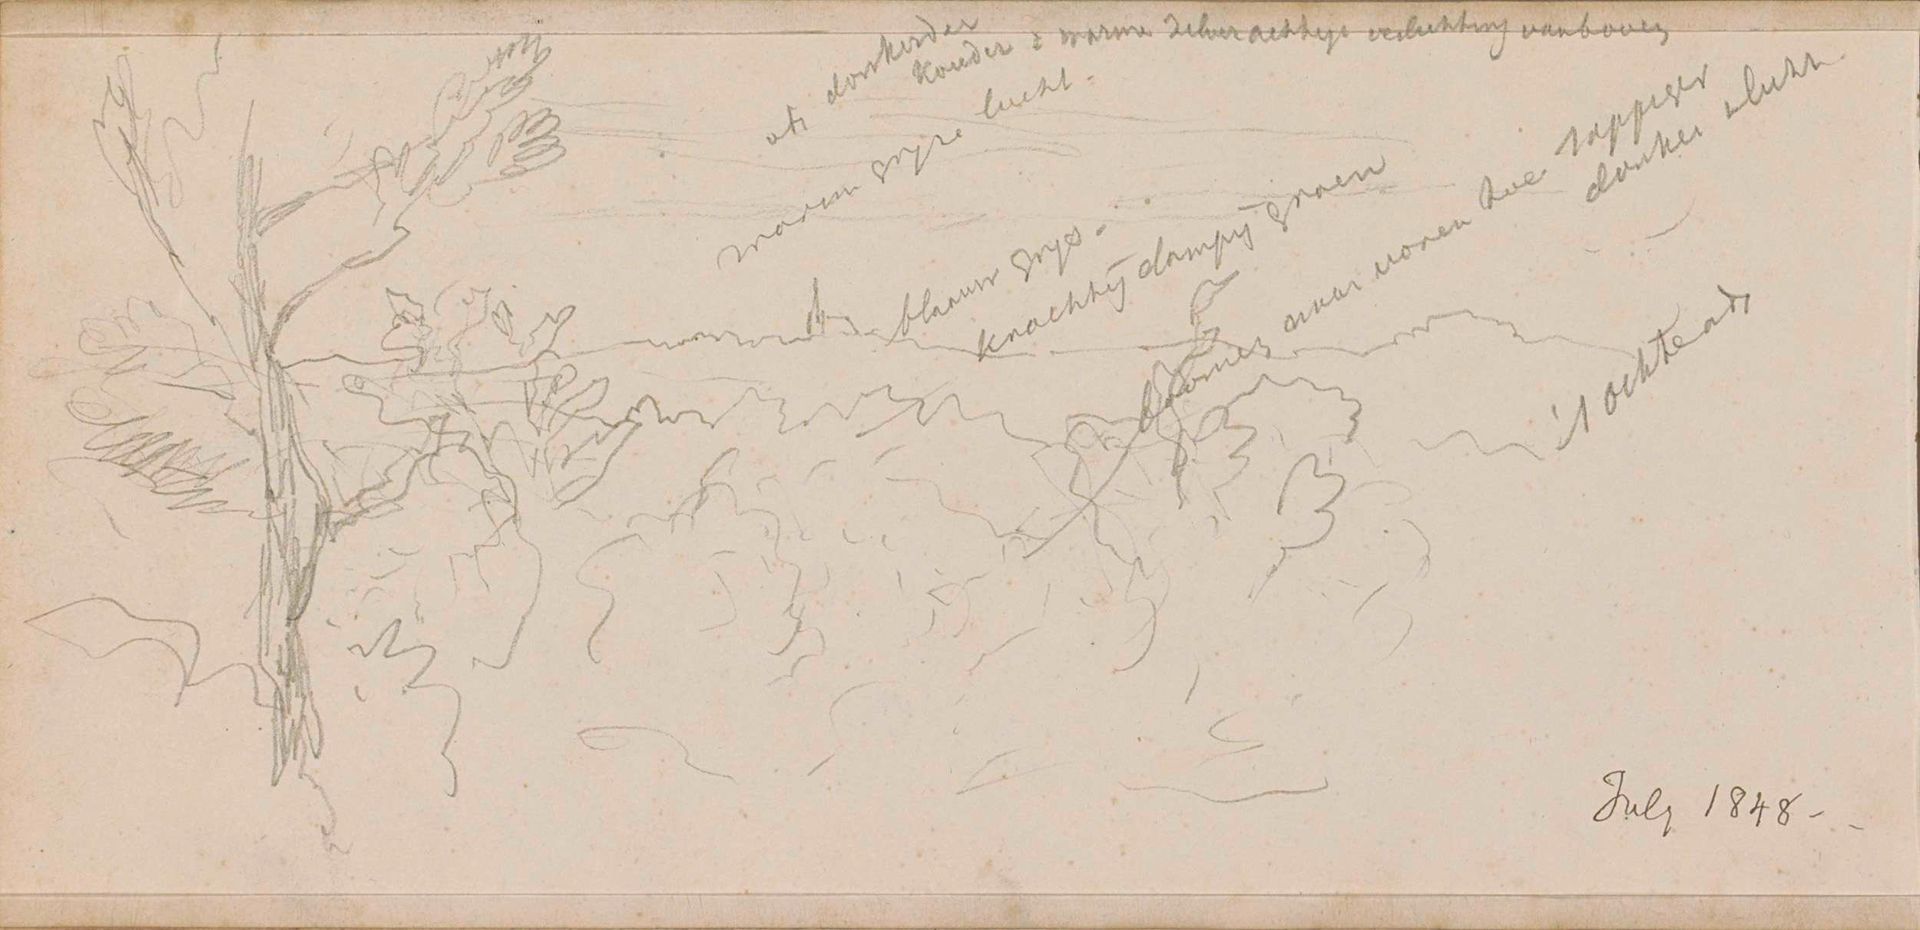 donkerder
kouder & warme zilverachtige verlichting van boven
warm gryze lucht -
blauw grys -
krachtig dampig groen
boomen naar voren toe sappiger
donker
's ochtends
July 1848 -